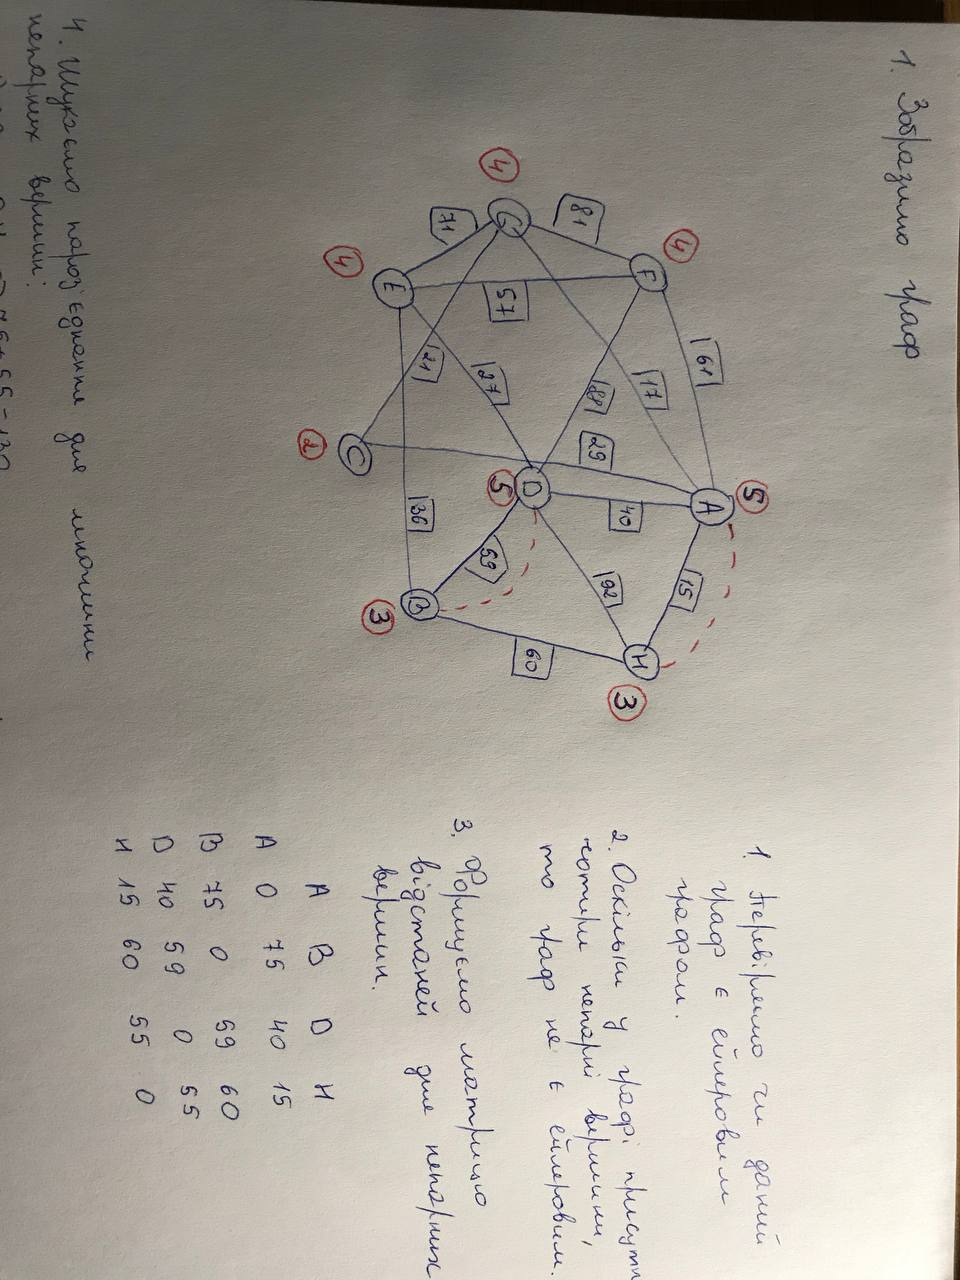 1. Зобразимо граф
4
G
81
4
F
71
4
E
57
61
21
27
88
17
2
C
29
5
D
40
A
5
36
59
92
15
B
3
60
H
3
1. Перевіримо чи даний
граф є ейлеровим
графом.
2. Оскільки у графі присутні
чотири непарні вершини,
то граф не є ейлеровим.
3. Формуємо матрицю
відстаней для непарних
вершин.
A B D H
A 0 75 40 15
B 75 0 59 60
D 40 59 0 55
H 15 60 55 0
4. Шукаємо пароз'єднання для множини
непарних вершин:
75+55=130